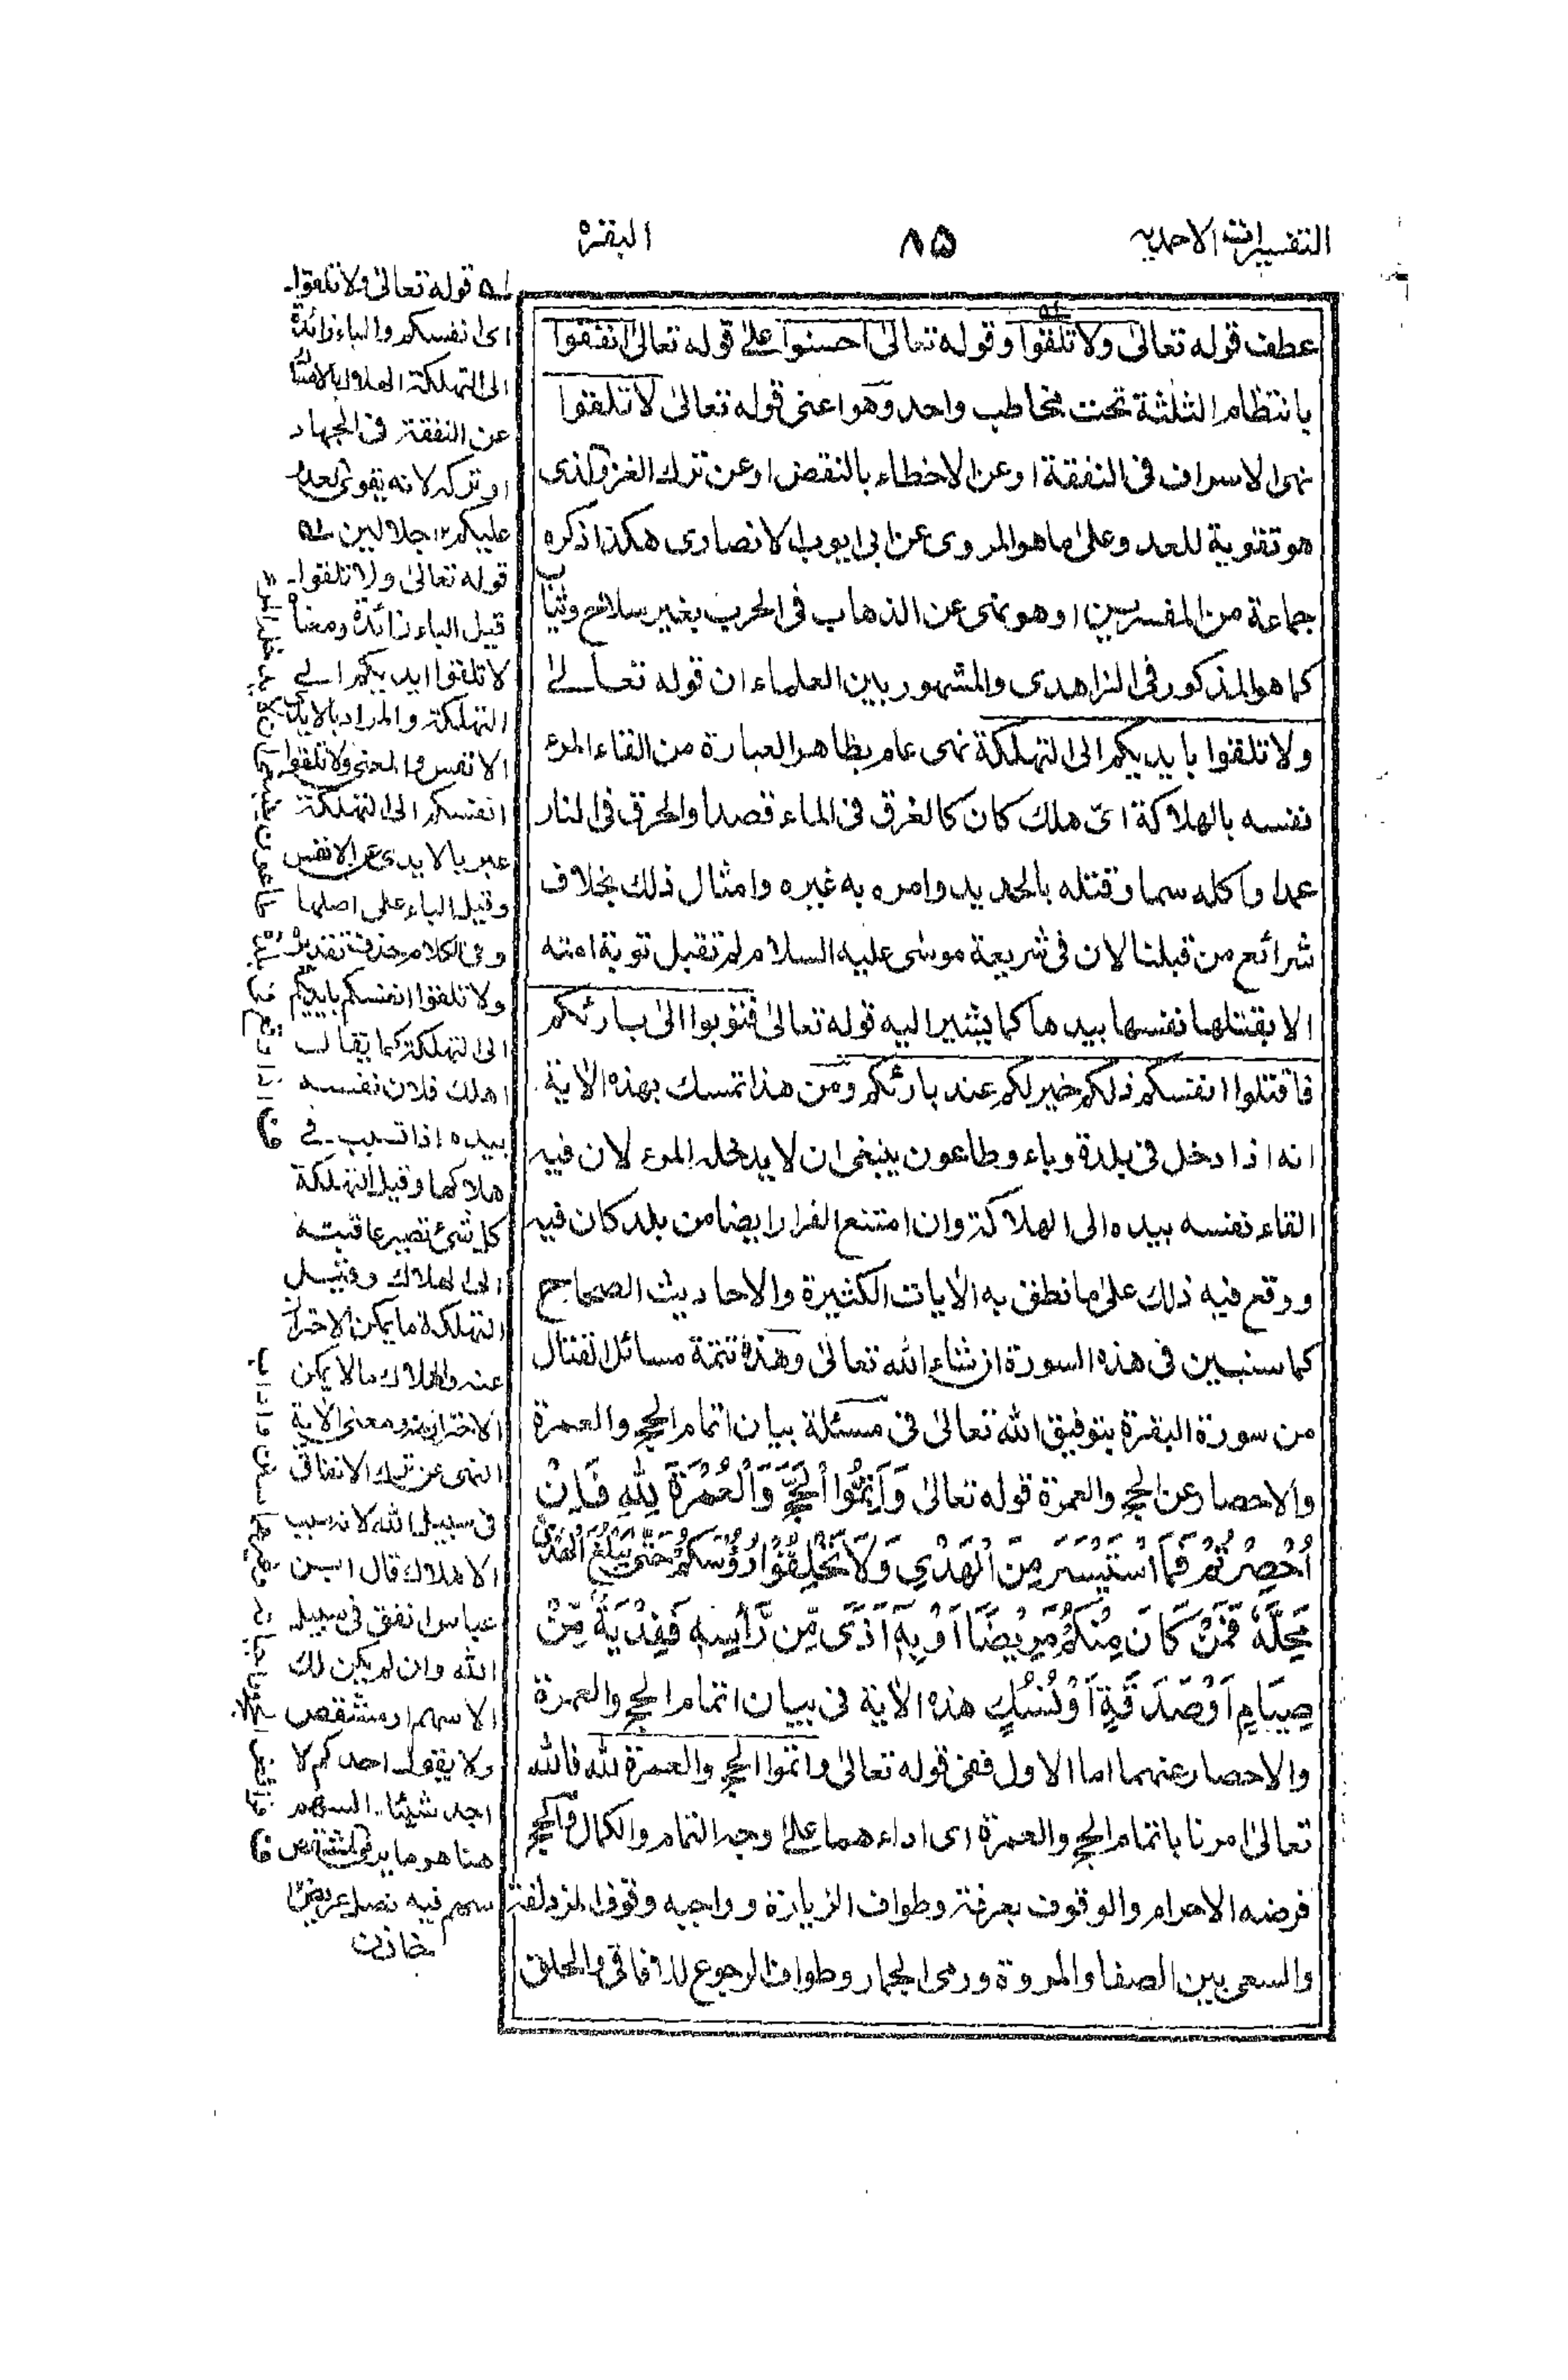 التفسيرات الاحمديه
٨۵
البقره
عطف قوله تعالىٰ ولا تلقوا وقوله تعالىٰ احسنوا علىٰ قوله تعالىٰ انفقوا
بانتظام الثلثة تحت مخاطب واحد وهو اعنى قوله تعالىٰ لا تلقوا
نهى الاسراف فى النفقة او عن الاخطاء بالنقض او عن ترك الغزو الذى
هو تقوية للعد وعلىٰ ما هو المروى عن ابى ايوب الانصارى هكذا ذكره
جماعة من المفسرين او هو نهى عن الذهاب فى الحرب بغير سلاح وثياب
كما هو المذكور فى الزاهدى والمشهور بين العلماء ان قوله تعالىٰ
ولا تلقوا بايديكم الى التهلكة نهى عام بظاهر العبارة من القاء المرء
نفسه بالهلاكة اىّ هلك كان كالغرق فى الماء قصدا والحرق فى النار
عمدا واكله سما وقتله بالحديد وامره به غيره وامثال ذلك بخلاف
شرائع من قبلنا لان فى شريعة موسى عليه السلام لم تقبل توبة امته
الا بقتلها نفسها بيدها كما يشير اليه قوله تعالىٰ فتوبوا الىٰ بارئكم
فاقتلوا انفسكم ذلكم خير لكم عند بارئكم ومن هذا تمسك بهذه الآية
انه اذا دخل فى بلدة وباء وطاعون ينبغى ان لا يدخله المرء لان فيه
القاء نفسه بيده الى الهلاكة وان امتنع الفرار ايضا من بلد كان فيه
ووقع فيه ذلك علىٰ ما نطق به الآيات الكثيرة والاحاديث الصحاح
كما سنبين فى هذه السورة ان شاء الله تعالىٰ وهذه تتمة مسائل القتال
من سورة البقرة بتوفيق الله تعالىٰ فى مسئلة بيان اتمام الحج والعمرة
والاحصار عن الحج والعمرة قوله تعالىٰ وَاَتِمُّوا الْحَجَّ وَالْعُمْرَةَ لِلّٰهِ فَاِنْ
اُحْصِرْتُمْ فَمَا اسْتَيْسَرَ مِنَ الْهَدْيِ وَلَا تَحْلِقُوْا رُؤُسَكُمْ حَتّٰى يَبْلُغَ الْهَدْىُ
مَحِلَّهٗ فَمَنْ كَانَ مِنْكُمْ مَرِيْضًا اَوْ بِهٖٓ اَذًى مِّنْ رَّاْسِهٖ فَفِدْيَةٌ مِّنْ
صِيَامٍ اَوْ صَدَقَةٍ اَوْ نُسُكٍ هذه الآية فى بيان اتمام الحج والعمرة
والاحصار عنهما اما الاول ففى قوله تعالىٰ واتموا الحج والعمرة لله فالله
تعالىٰ امرنا باتمام الحج والعمرة اى اداءهما علىٰ وجه التمام والكمال فالحج
فرضه الاحرام والوقوف بعرفة وطواف الزيارة وواجبه وقوف المزدلفة
والسعى بين الصفا والمروة ورمى الجمار وطواف الرجوع للآفاقى والحلق
لـه قوله تعالىٰ ولا تلقوا
اى انفسكم والباء زائدة
الى التهلكة الهلاك بالامساك
عن النفقة فى الجهاد
او تركه لانه يقوى العدو
عليكم ١٢ جلالين
قوله تعالىٰ ولا تلقوا
قيل الباء زائدة ومعناه
لا تلقوا ايديكم الى
التهلكة والمراد بالايدى
الانفس والمعنى ولا تلقوا
انفسكم الى التهلكة
عبر بالايدى عن الانفس
وقيل الباء على اصلها
وفى الكلام حذف تقديره
ولا تلقوا انفسكم بايديكم
الى التهلكة كما يقال
اهلك فلان نفسه
بيده اذا تسبب فى
هلاكها وقيل التهلكة
كل شئ تصير عاقبته
الى الهلاك وقيل
التهلكة ما يمكن الاحتراز
عنه والهلاك ما لا يمكن
الاحتراز عنه ومعنى الآية
النهى عن ترك الانفاق
فى سبيل الله لانه سبب
الاهلاك قال ابن
عباس انفق فى سبيل
الله وان لم يكن لك
الا سهم او مشقص
ولا يقول احدكم لا
اجد شيئا السهم
هنا هو ما يرمى والمشقص
سهم فيه نصل عريض
خازن